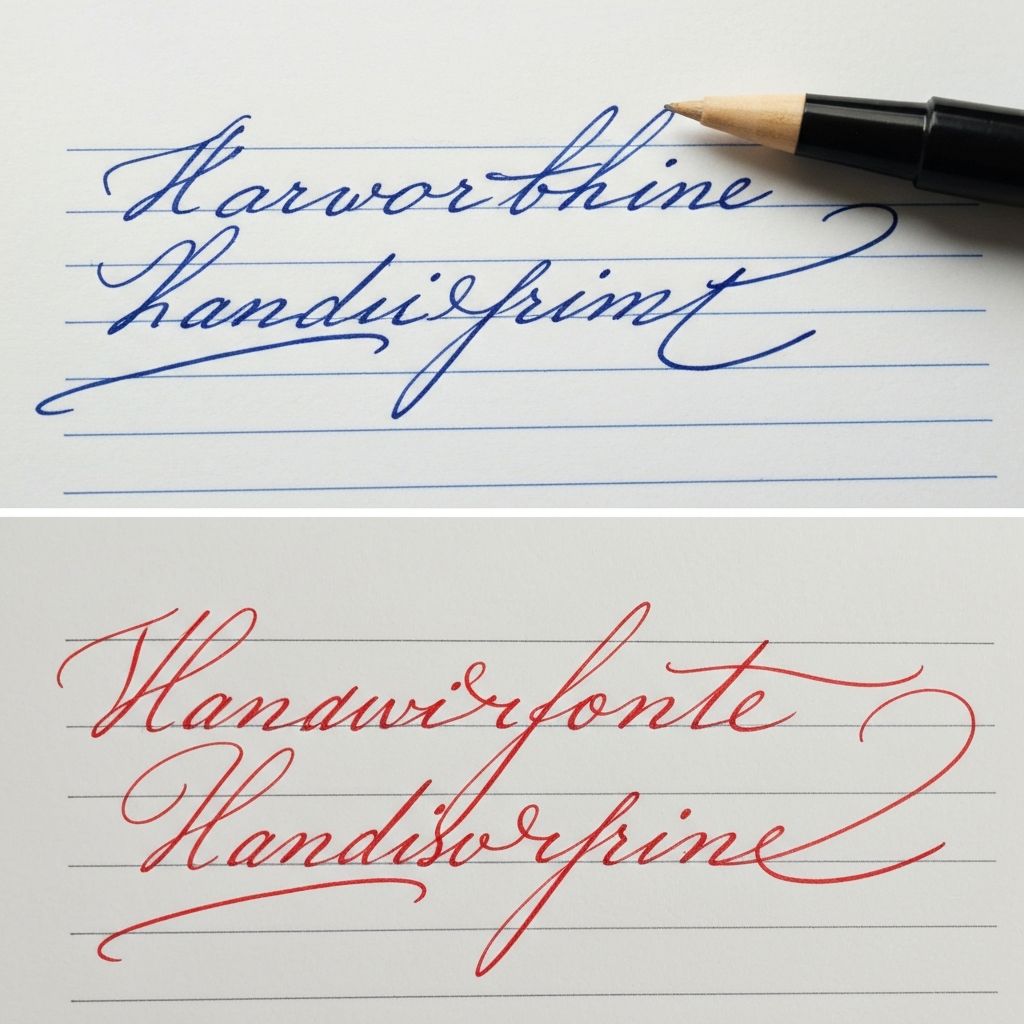 Harworthine
Handiefrimt
Handwirfonte
Handisorfrine